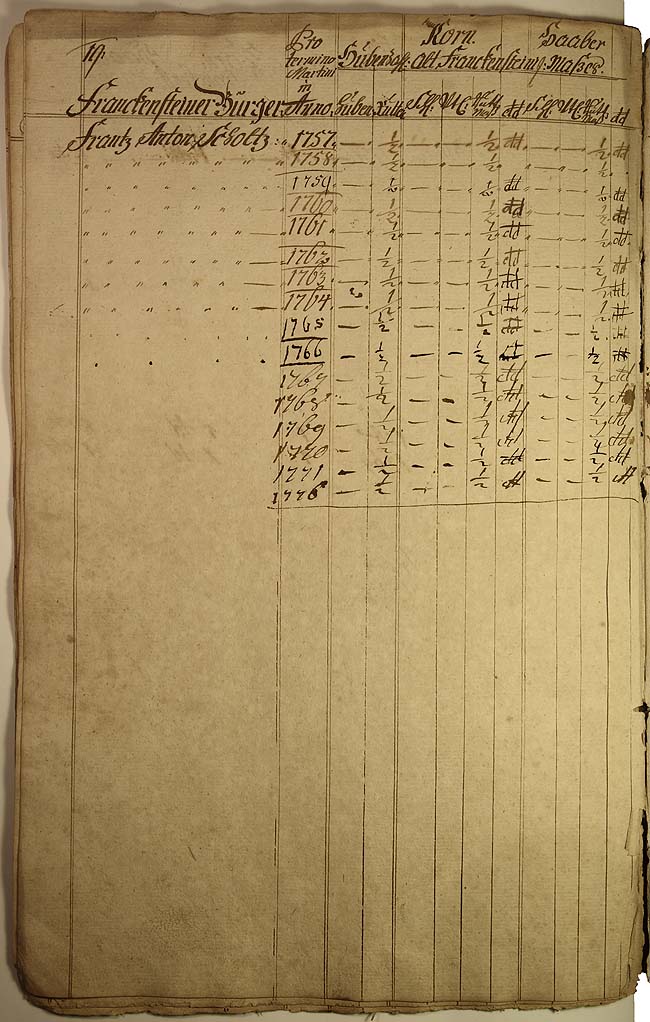 19.
Pro termino Martini in Anno. Korn. Haaber
Hüben Zahl: alt Franckensteins. Maßes.
Franckensteiner Bürger Huben Rutte Schl. M dd Schl. M dd
Frantz Anton Scholtz: 1757. — ½ — — ½ dd — — ½ dd
1758. — ½ — — ½ — — ½
1759 — ½ — — ½ dd — — ½ dd
1760 — ½ — — ½ dd — — ½ dd
1761 — ½ — — ½ dd — — ½ dd
1762 — ½ — — ½ dd — — ½ dd
1763 — ½ — — ½ dd — — ½ dd
1764 ½ — — ½ dd — — ½ dd
1765 — ½ — — ½ dd — — ½ dd
1766 — ½ — — ½ dd — — ½ dd
1767 — ½ — — ½ dd — — ½ dd
1768 — ½ — — ½ dd — — ½ dd
1769 — ½ — — ½ dd — — ½ dd
1770 — ½ — — ½ dd — — ½ dd
1771 — ½ — — ½ dd — — ½ dd
1776 — ½ — — ½ dd — — ½ dd